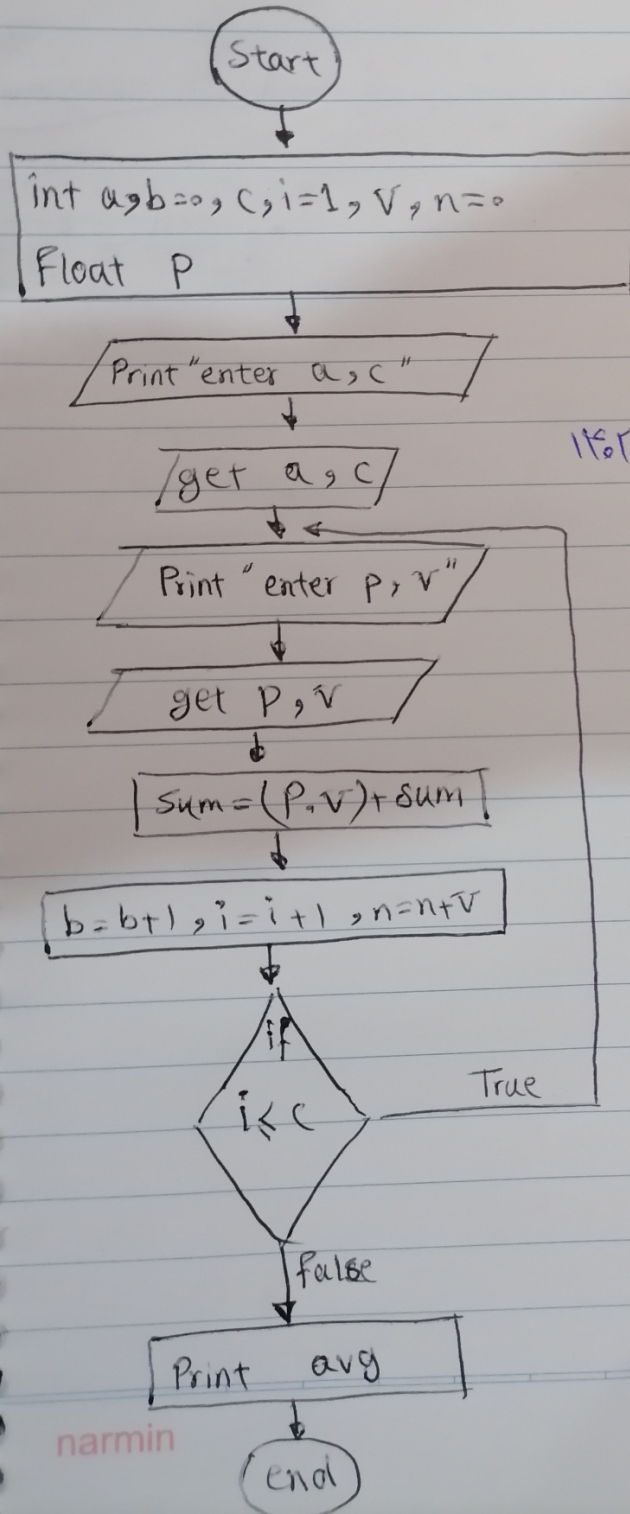 Start
int a,b=0, c, i=1, V, n=0
Float P
Print "enter a, c"
get a, c
Print "enter P, V"
get P, V
Sum=(P.V)+Sum
b=b+1, i=i+1, n=n+V
if
i≤c
True
false
Print avg
narmin
end